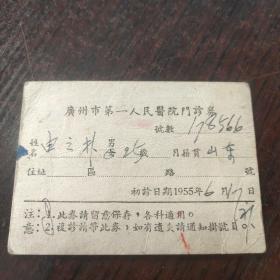 廣州市第一人民醫院門診券
號數 178566
姓名 男女 25歲 月籍貫山東
住址 區 路 號
初診日期1955年6月17日
注:1.此券請留意保存,各科適用。
意:2.複診請帶此券,如有遺失請通知掛號員。